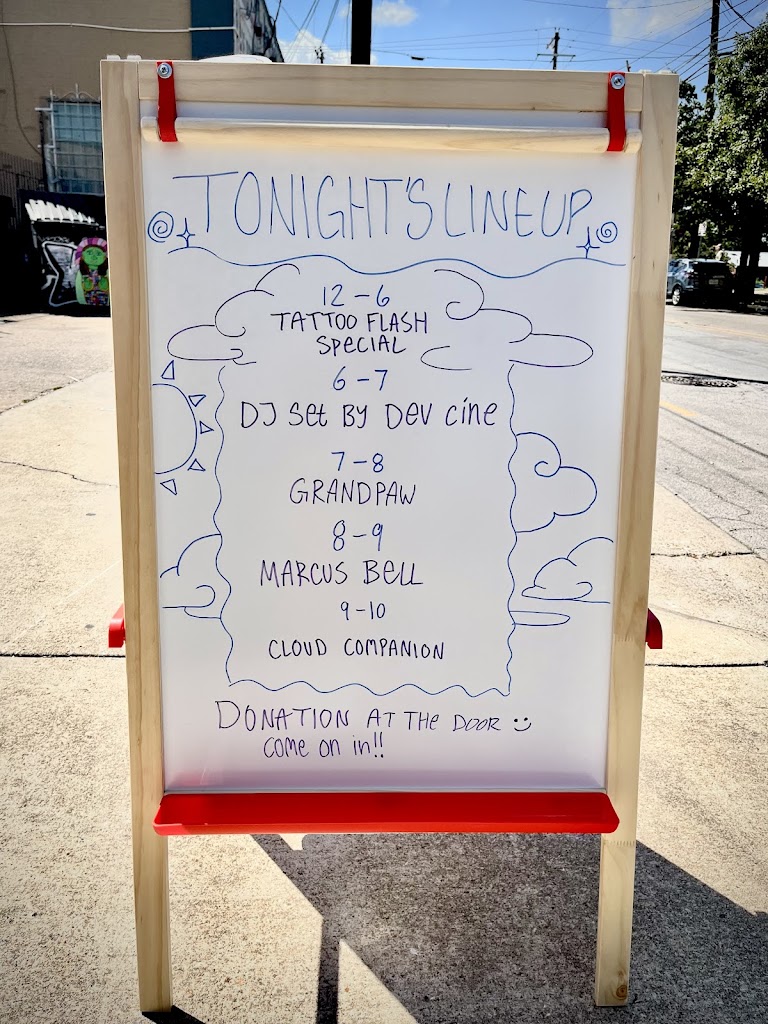 TONIGHT'S LINEUP
12-6
TATTOO FLASH
SPECIAL
6-7
DJ Set BY Dev cine
7-8
GRANDPAW
8-9
MARCUS BELL
9-10
CLOUD COMPANION
DONATION AT THE DOOR :)
come on in!!